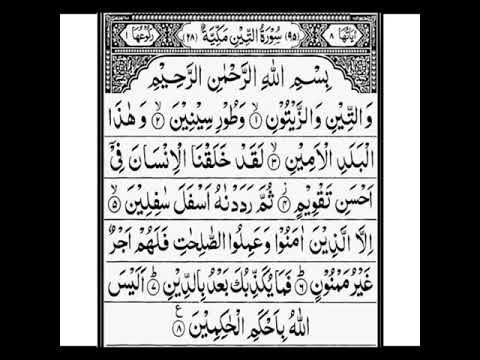 اٰيَاتُهَا ٨ (٩٥) سُوْرَةُ التِّيْنِ مَكِّيَّةٌ (٢٨) رُكُوْعُهَا ١
بِسْمِ اللّٰهِ الرَّحْمٰنِ الرَّحِيْمِ
وَالتِّيْنِ وَالزَّيْتُوْنِ ۙ‏ ١ وَطُوْرِ سِيْنِيْنَ ۙ‏ ٢ وَهٰذَا
الْبَلَدِ الْاَمِيْنِ ۙ‏ ٣ لَقَدْ خَلَقْنَا الْاِنْسَانَ فِيْۤ
اَحْسَنِ تَقْوِيْمٍ ۫‏ ٤ ثُمَّ رَدَدْنٰهُ اَسْفَلَ سٰفِلِيْنَ ۙ‏ ٥
اِلَّا الَّذِيْنَ اٰمَنُوْا وَعَمِلُوا الصّٰلِحٰتِ فَلَهُمْ اَجْرٌ
غَيْرُ مَمْنُوْنٍ ؕ‏ ٦ فَمَا يُكَذِّبُكَ بَعْدُ بِالدِّيْنِ ؕ‏ ٧ اَلَيْسَ
اللّٰهُ بِاَحْكَمِ الْحٰكِمِيْنَ ٨ ع